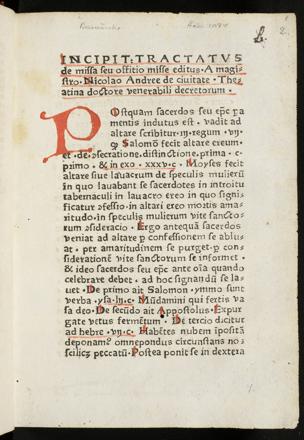 INCIPIT · TRACTATVS
de missa seu offitio misse editus · A magi
stro · Nicolao Andree de ciuitate · The
atina doctore venerabili decretorum ·
POstquam sacerdos seu ep̄c ꝑa
mentis indutus est · vadit ad
altare scribitur · iij · regum · vij ·
ꝙ Salomō fecit altare ereum ·
et · de · ꝯsecratione · distinctione · prima · c ·
primo · & in exo · xxxv · c · Moyses fecit
altare siue lauacrum de speculis mulierū
in quo lauabant se sacerdotes in introitu
tabernaculi in lauacro ereo in quo signi
ficatur
altari ereo mortis ama
ritudo · in speculis mulierum vite sanctoꝝ
rum ꝯsideracio · Ergo antequā sacerdos
veniat ad altare ꝑ confessionem se ablu
at · per amaritudinem se purget · ꝑ con
siderationē vite sanctorum se informet ·
& ideo sacerdos seu ep̄c ante oīa quando
celebrare debet · ad hoc signandū se la
uet · De primo ait Salomon · ymmo sunt
verba · ysa · in · c · Mūdamini qui fertis va
sa deo · De secūdo ait Appostolus · Expur
gate vetus fermētum · De tercio dicitur
ad hebre · vij · c · Habētes nubem īpositā
deponam⁹ omnepondus circumstans no
s scilicꝫ peccatū · Postea ponit se in dextera